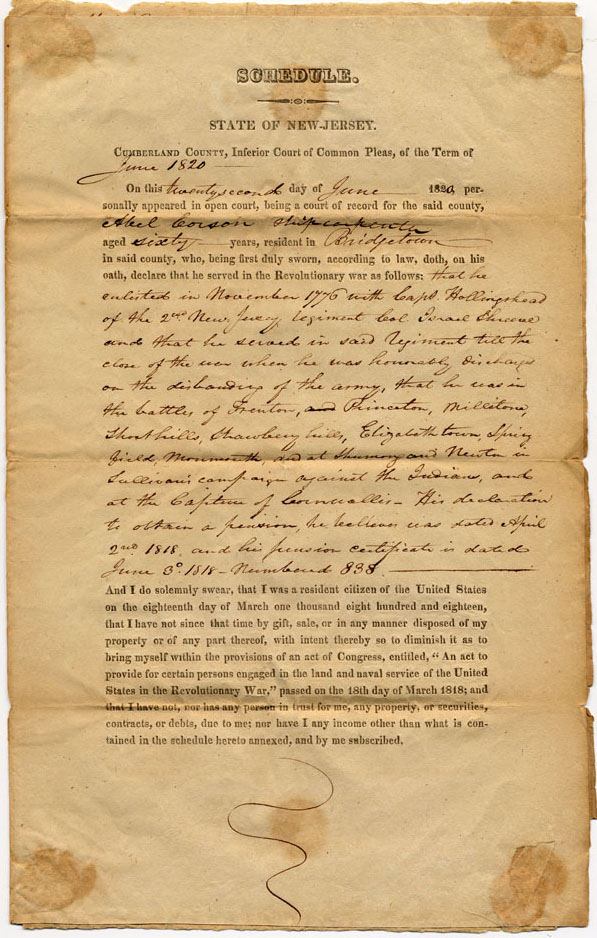 SCHEDULE.
STATE OF NEW-JERSEY.
CUMBERLAND COUNTY, Inferior Court of Common Pleas, of the Term of
June 1820
On this twenty second day of June 1820, per-
sonally appeared in open court, being a court of record for the said county,
Abel Corson Shipcarpenter
aged sixty years, resident in Bridgetown
in said county, who, being first duly sworn, according to law, doth, on his
oath, declare that he served in the Revolutionary war as follows: that he
enlisted in November 1776 with Capt. Hollingshead
of the 2nd New Jersey regiment Col Israel Shreeve
and that he served in said Regiment till the
close of the war when he was honourably discharged
on the disbanding of the army, that he was in
the battles of Trenton, and Princeton, Millstone,
Short hills, Strawberry hills, Elizabethtown, Spring
field, Monmouth, and at and Newton in
Sullivan's campaign against the Indians, and
at the Capture of Cornwallis - His declaration
to obtain a pension, he believes was dated April
2nd 1818, and his pension certificate is dated
June 3d. 1818 - Numbered 838.
And I do solemnly swear, that I was a resident citizen of the United States
on the eighteenth day of March one thousand eight hundred and eighteen,
that I have not since that time by gift, sale, or in any manner disposed of my
property or of any part thereof, with intent thereby so to diminish it as to
bring myself within the provisions of an act of Congress, entitled, "An act to
provide for certain persons engaged in the land and naval service of the United
States in the Revolutionary War," passed on the 18th day of March 1818; and
that I have not, nor has any person in trust for me, any property, or securities,
contracts, or debts, due to me; nor have I any income other than what is con-
tained in the schedule hereto annexed, and by me subscribed.